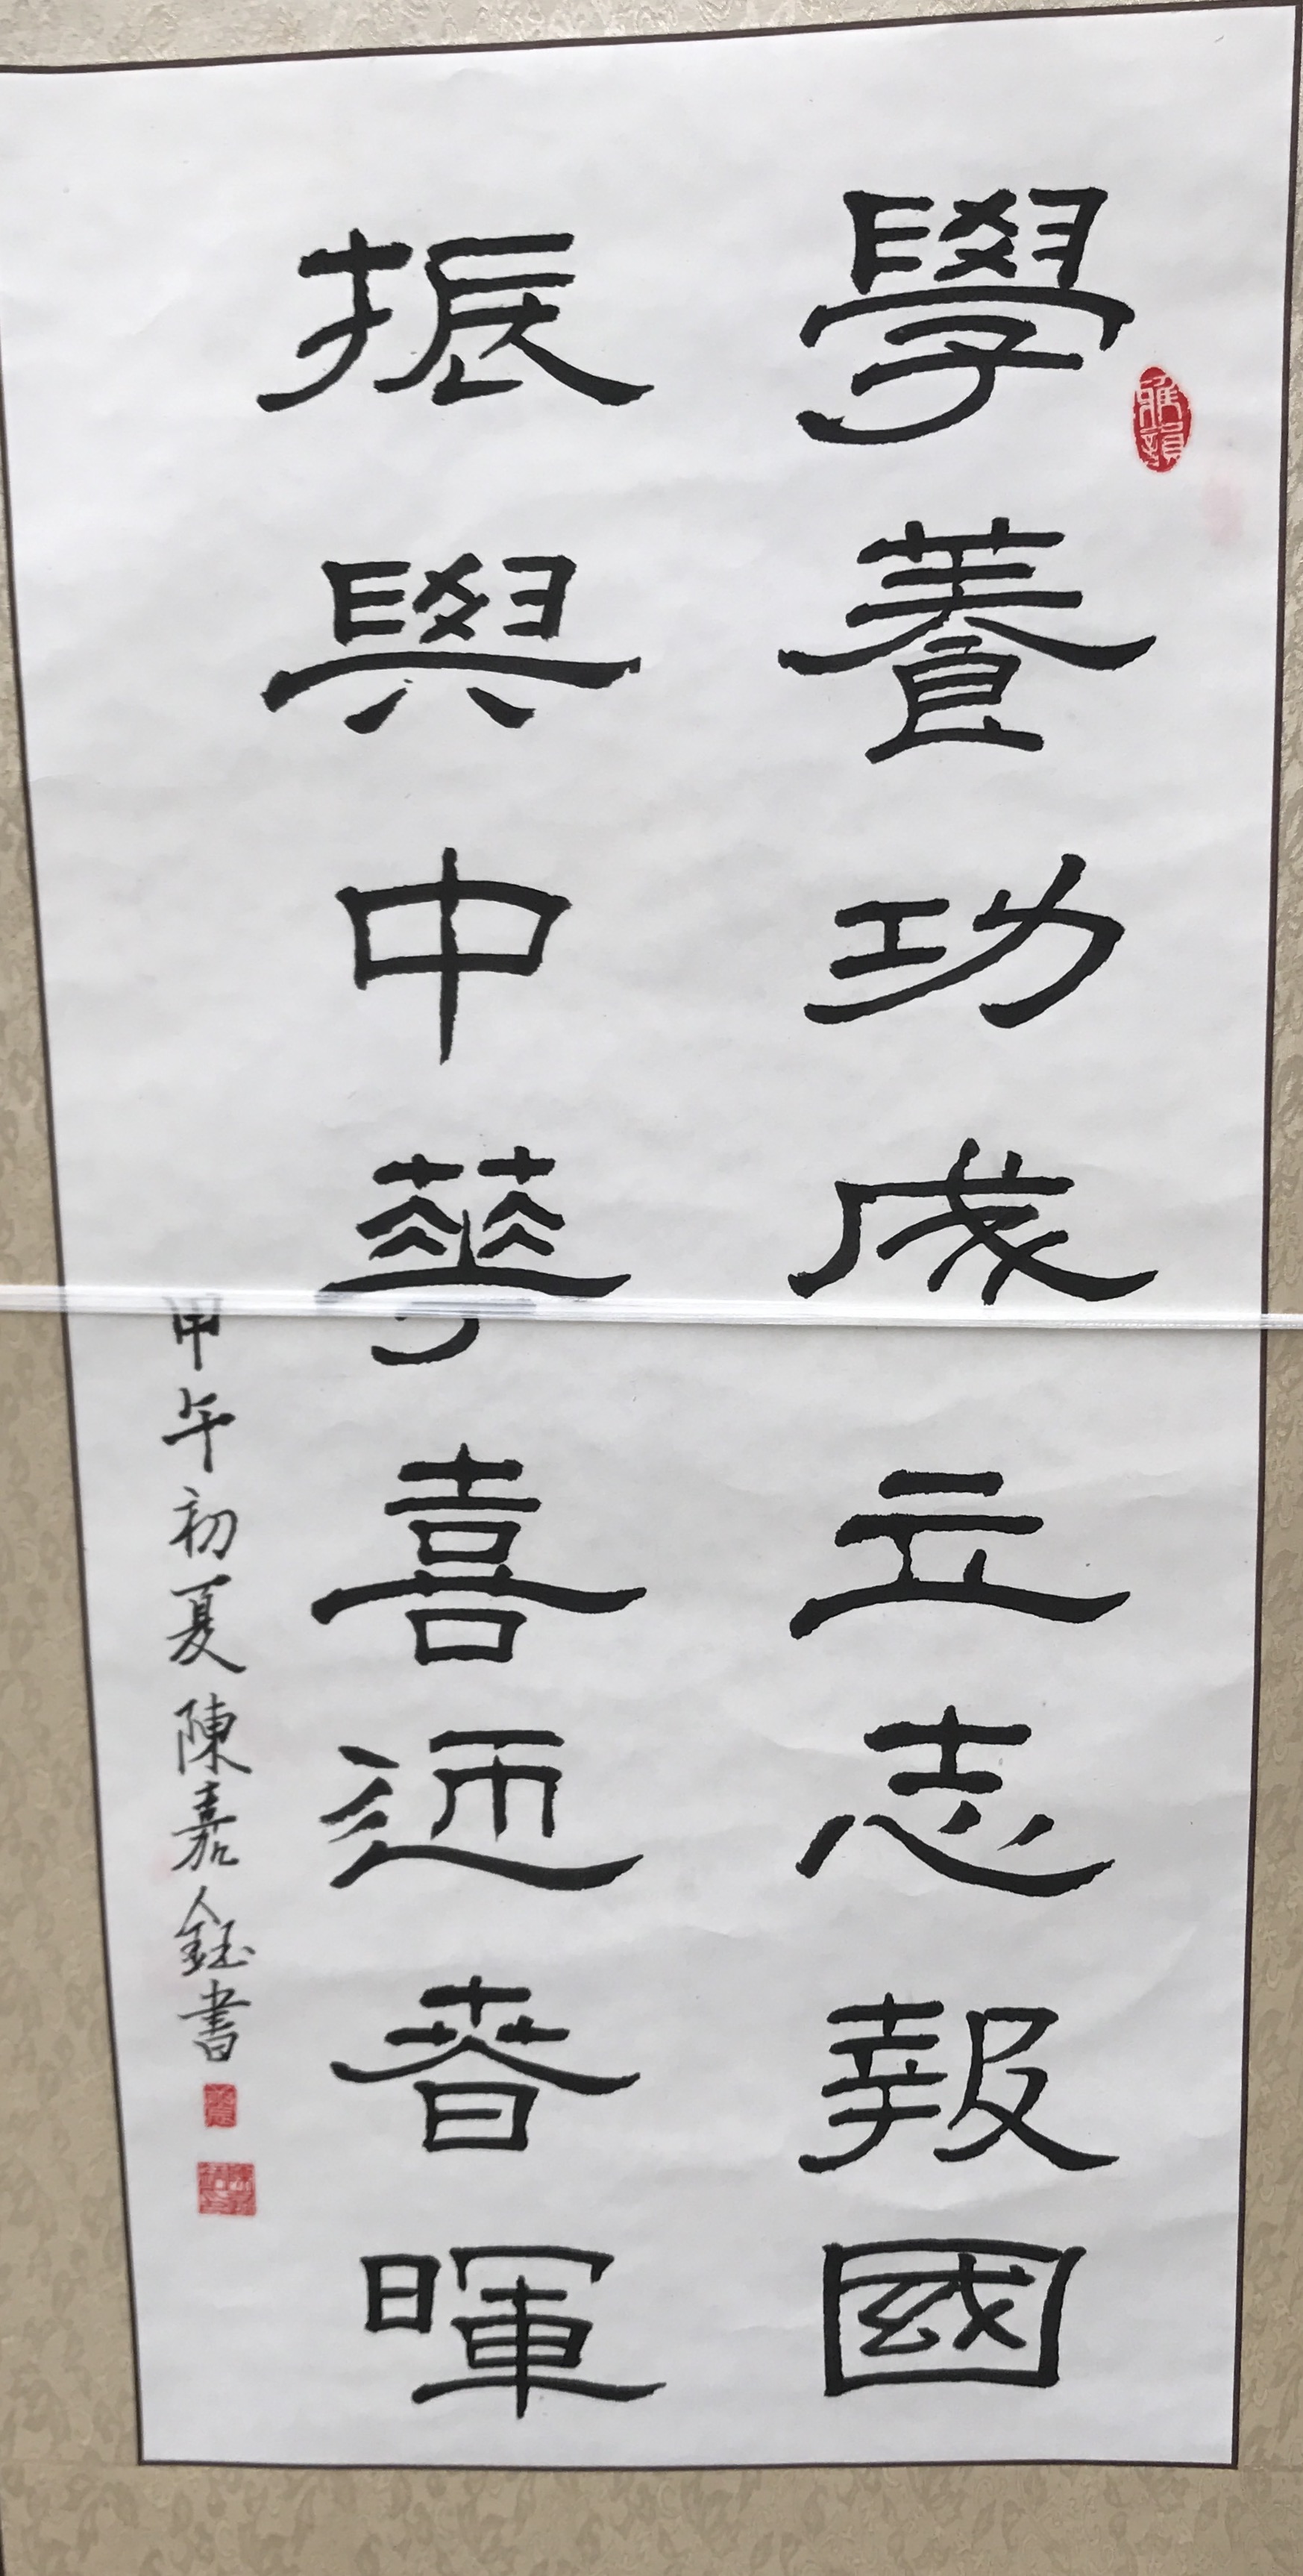 雅韻
學養功成立志報國
振興中華喜迎春暉
甲午初夏陳嘉鈺書